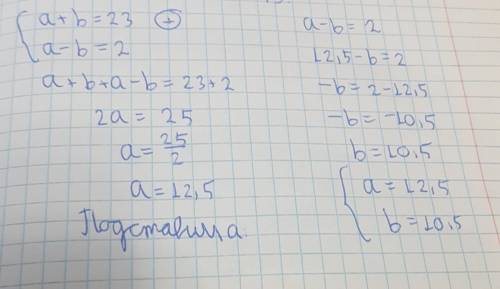 a+b=23 (+)
a-b=2
a+b+a-b=23+2
2a=25
a=25/2
a=12,5
Подставим a.
a-b=2
12,5-b=2
-b=2-12,5
-b=-10,5
b=10,5
a=12,5
b=10,5